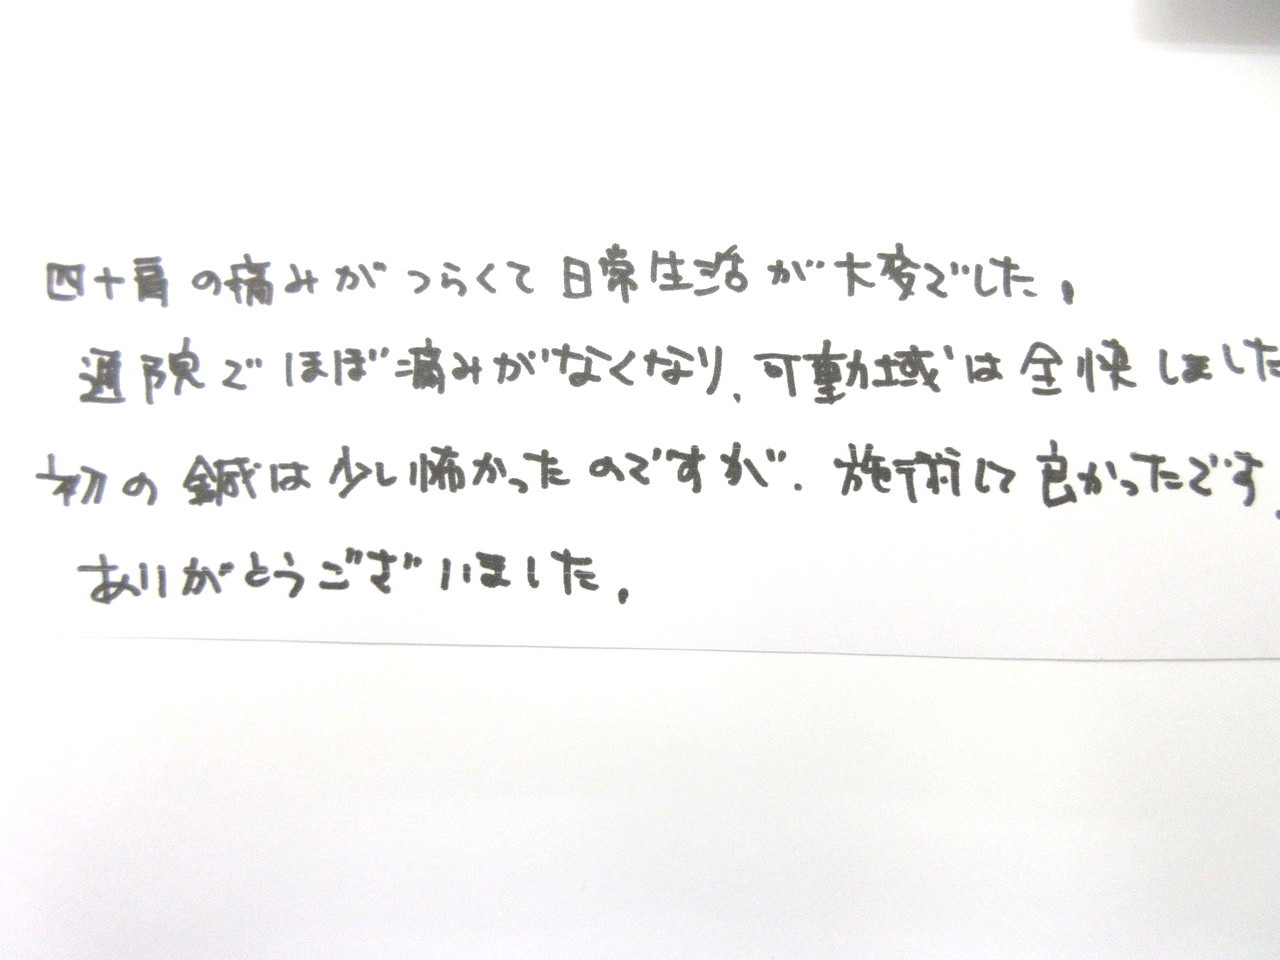 四十肩の痛みがつらくて日常生活が大変でした。
通院でほぼ痛みがなくなり、可動域は全快しました
初の鍼は少し怖かったのですが、施術して良かったです。
ありがとうございました。